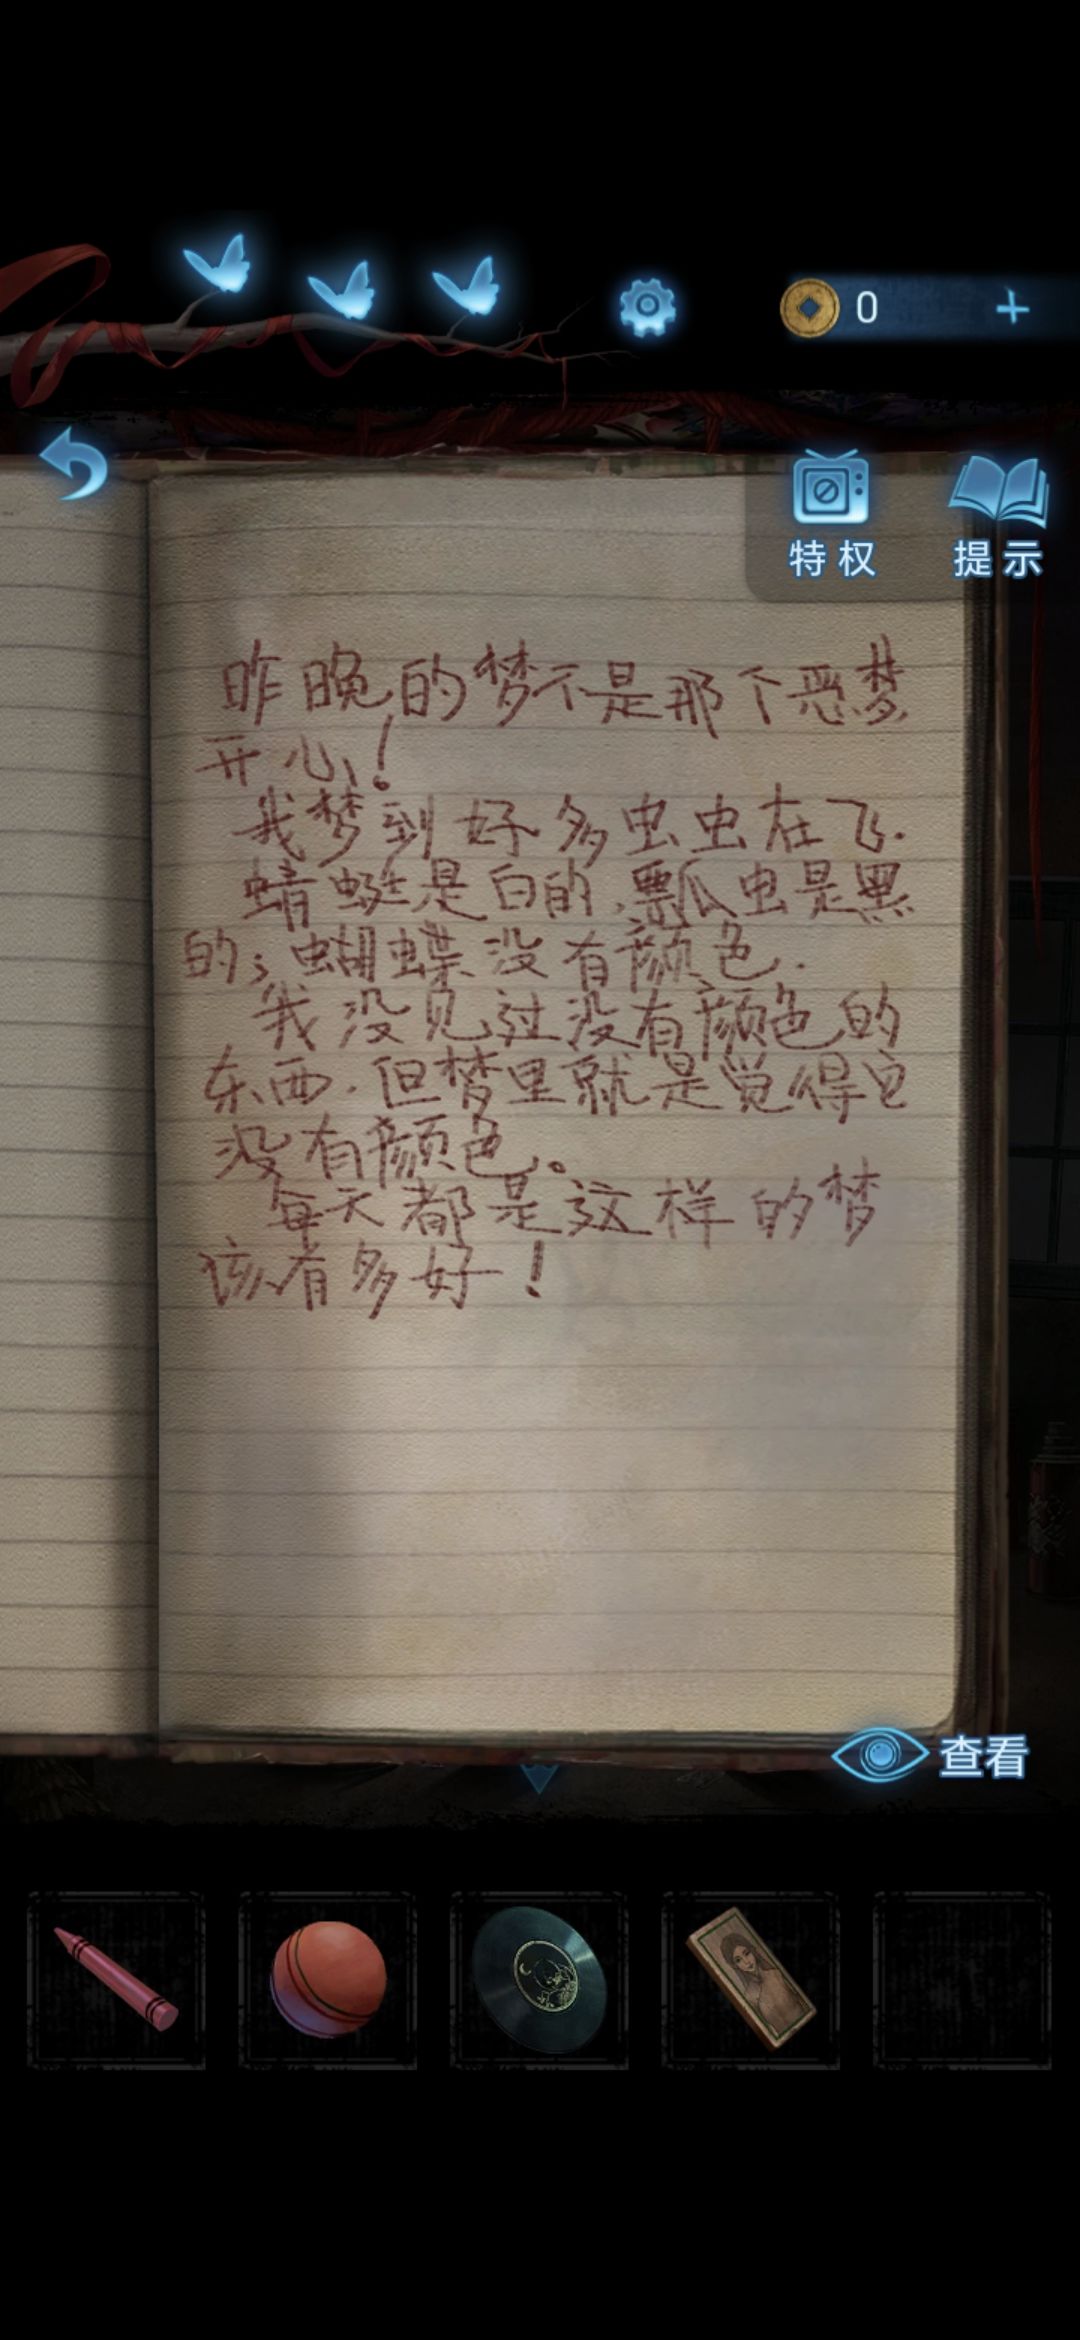 0
特权
提示
昨晚的梦不是那个恶梦
开心！
我梦到好多虫虫在飞.
蜻蜓是白的,瓢虫是黑
的;蝴蝶没有颜色.
我没见过没有颜色的
东西.但梦里就是觉得它
没有颜色。
每天都是这样的梦
该有多好！
查看